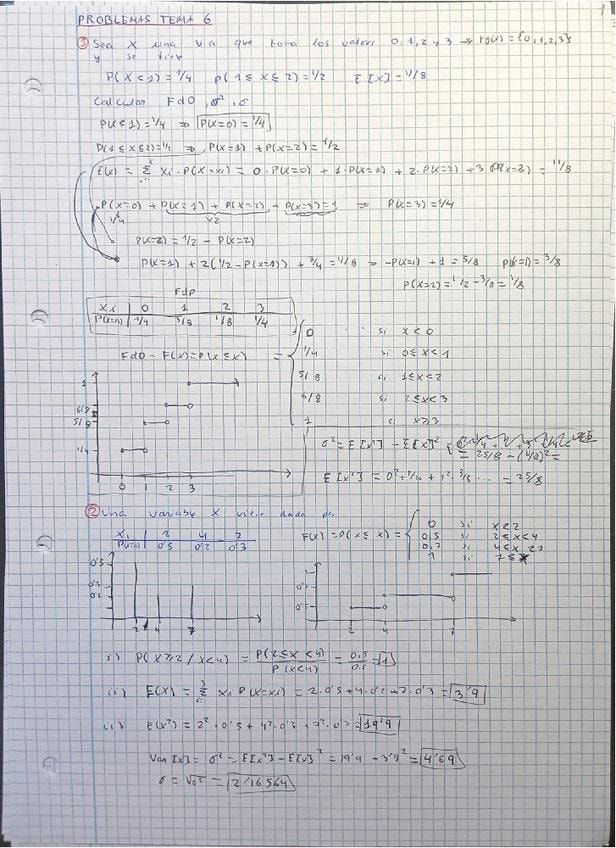 1
PROBLEMAS TEMA 6
① Sea X una v.a que toma los valores 0,1,2 y 3 → r(x) = {0,1,2,3}
y se tiene
P(X<1) = 1/4 P(1≤X≤2) = 1/2 E[X] = 11/8
Calcular FdD, σ², σ
P(X<1) = 1/4 ⇒ P(X=0) = 1/4
P(1≤X≤2) = 1/2 ⇒ P(X=1) + P(X=2) = 1/2
E(X) = Σ xi · P(X=xi) = 0 · P(X=0) + 1 · P(X=1) + 2 · P(X=2) + 3 P(X=3) = 11/8
P(X=0) + P(X=1) + P(X=2) + P(X=3) = 1 ⇒ P(X=3) = 1/4
1/4 1/2
P(X=2) = 1/2 - P(X=2)
P(X=1) + 2(1/2 - P(X=1)) + 3/4 = 11/8 ⇒ -P(X=1) + 1 = 5/8 P(X=1) = 3/8
P(X=2) = 1/2 - 3/8 = 1/8
Fdp
Xi 0 1 2 3
P(X=xi) 1/4 3/8 1/8 1/4
FdD - F(x) = P(X≤x) =
0 si x<0
1/4 si 0≤x<1
5/8 si 1≤x<2
6/8 si 2≤x<3
1 si x≥3
1
6/8
5/8
1/4
0 1 2 3
σ² = E[X²] - E[X]²
= 25/8 - (11/8)² =
E[X²] = 0² · 1/4 + 1² · 3/8 ... = 25/8
② Una variable X viene dada por
Xi 2 4 7
P(X=xi) 0'5 0'2 0'3
F(x) = P(X≤x) =
0 si x≥2
0,5 si 2≤x<4
0,7 si 4≤x<7
1 si 7≤x
0'5
0'3
0'2
2 4 7
2 4 7
i) P(X≥2 / X<4) = P(2≤X<4) / P(X<4) = 0,5 / 0,5 = 1
ii) E(X) = Σ xi P(X=xi) = 2·0,5 + 4·0,2 + 7·0,3 = 3'9
iii) E(X²) = 2² · 0,5 + 4² · 0,2 + 7² · 0,3 = 19'9
Var[X] = σ² = E[X²] - E[X]² = 19'9 - 3,9² = 4'69
σ = √σ² = 2'16564